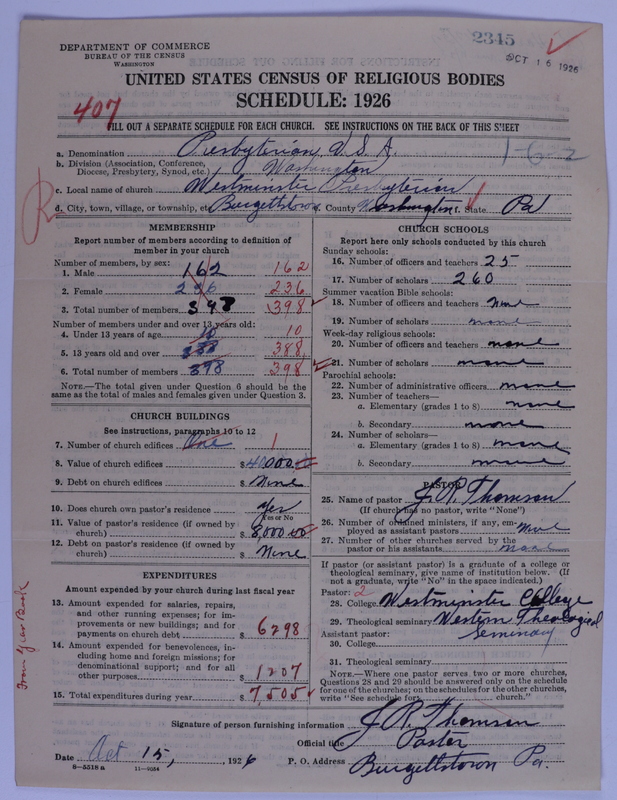 2345
OCT 16 1926
DEPARTMENT OF COMMERCE
BUREAU OF THE CENSUS
WASHINGTON
UNITED STATES CENSUS OF RELIGIOUS BODIES
SCHEDULE: 1926
407
FILL OUT A SEPARATE SCHEDULE FOR EACH CHURCH. SEE INSTRUCTIONS ON THE BACK OF THIS SHEET
a. Denomination Presbyterian U.S.A. 1-6-2
b. Division (Association, Conference, Diocese, Presbytery, Synod, etc.) Washington
c. Local name of church Westminster Presbyterian
R
d. City, town, village, or township, etc. Burgettstown e. County Washington f. State Pa
MEMBERSHIP
Report number of members according to definition of member in your church
Number of members, by sex:
1. Male 162 162
2. Female 236 236
3. Total number of members 398 398
Number of members under and over 13 years old:
4. Under 13 years of age 10 10
5. 13 years old and over 388 388
6. Total number of members 398 398
NOTE.—The total given under Question 6 should be the same as the total of males and females given under Question 3.
CHURCH BUILDINGS
See instructions, paragraphs 10 to 12
7. Number of church edifices One 1
8. Value of church edifices $40000.00
9. Debt on church edifices $ None
10. Does church own pastor's residence? Yes
Yes or No
11. Value of pastor's residence (if owned by church) $8,000.00
12. Debt on pastor's residence (if owned by church) $ None
EXPENDITURES
Amount expended by your church during last fiscal year
13. Amount expended for salaries, repairs, and other running expenses; for improvements or new buildings; and for payments on church debt $6298
14. Amount expended for benevolences, including home and foreign missions; for denominational support; and for all other purposes $1207
15. Total expenditures during year $7,505
From Year Book
CHURCH SCHOOLS
Report here only schools conducted by this church
Sunday schools:
16. Number of officers and teachers 25
17. Number of scholars 260
Summer vacation Bible schools:
18. Number of officers and teachers None
19. Number of scholars none
Week-day religious schools:
20. Number of officers and teachers none
21. Number of scholars none
Parochial schools:
22. Number of administrative officers none
23. Number of teachers—
a. Elementary (grades 1 to 8) none
b. Secondary none
24. Number of scholars—
a. Elementary (grades 1 to 8) none
b. Secondary none
PASTOR
25. Name of pastor J. R. Thomson
(If church has no pastor, write "None")
26. Number of ordained ministers, if any, employed as assistant pastors None
27. Number of other churches served by the pastor or his assistants None
If pastor (or assistant pastor) is a graduate of a college or theological seminary, give name of institution below. (If not a graduate, write "No" in the space indicated.)
Pastor: 2
28. College Westminster College
29. Theological seminary Western Theological
Assistant pastor: Seminary
30. College
31. Theological seminary
NOTE.—Where one pastor serves two or more churches, Questions 28 and 29 should be answered only on the schedule for one of the churches; on the schedules for the other churches, write "See schedule for church."
Signature of person furnishing information J. R. Thomson
Official title Pastor
Date Oct 15, 1926 P. O. Address Burgettstown Pa.
8—5518 a 11—9034